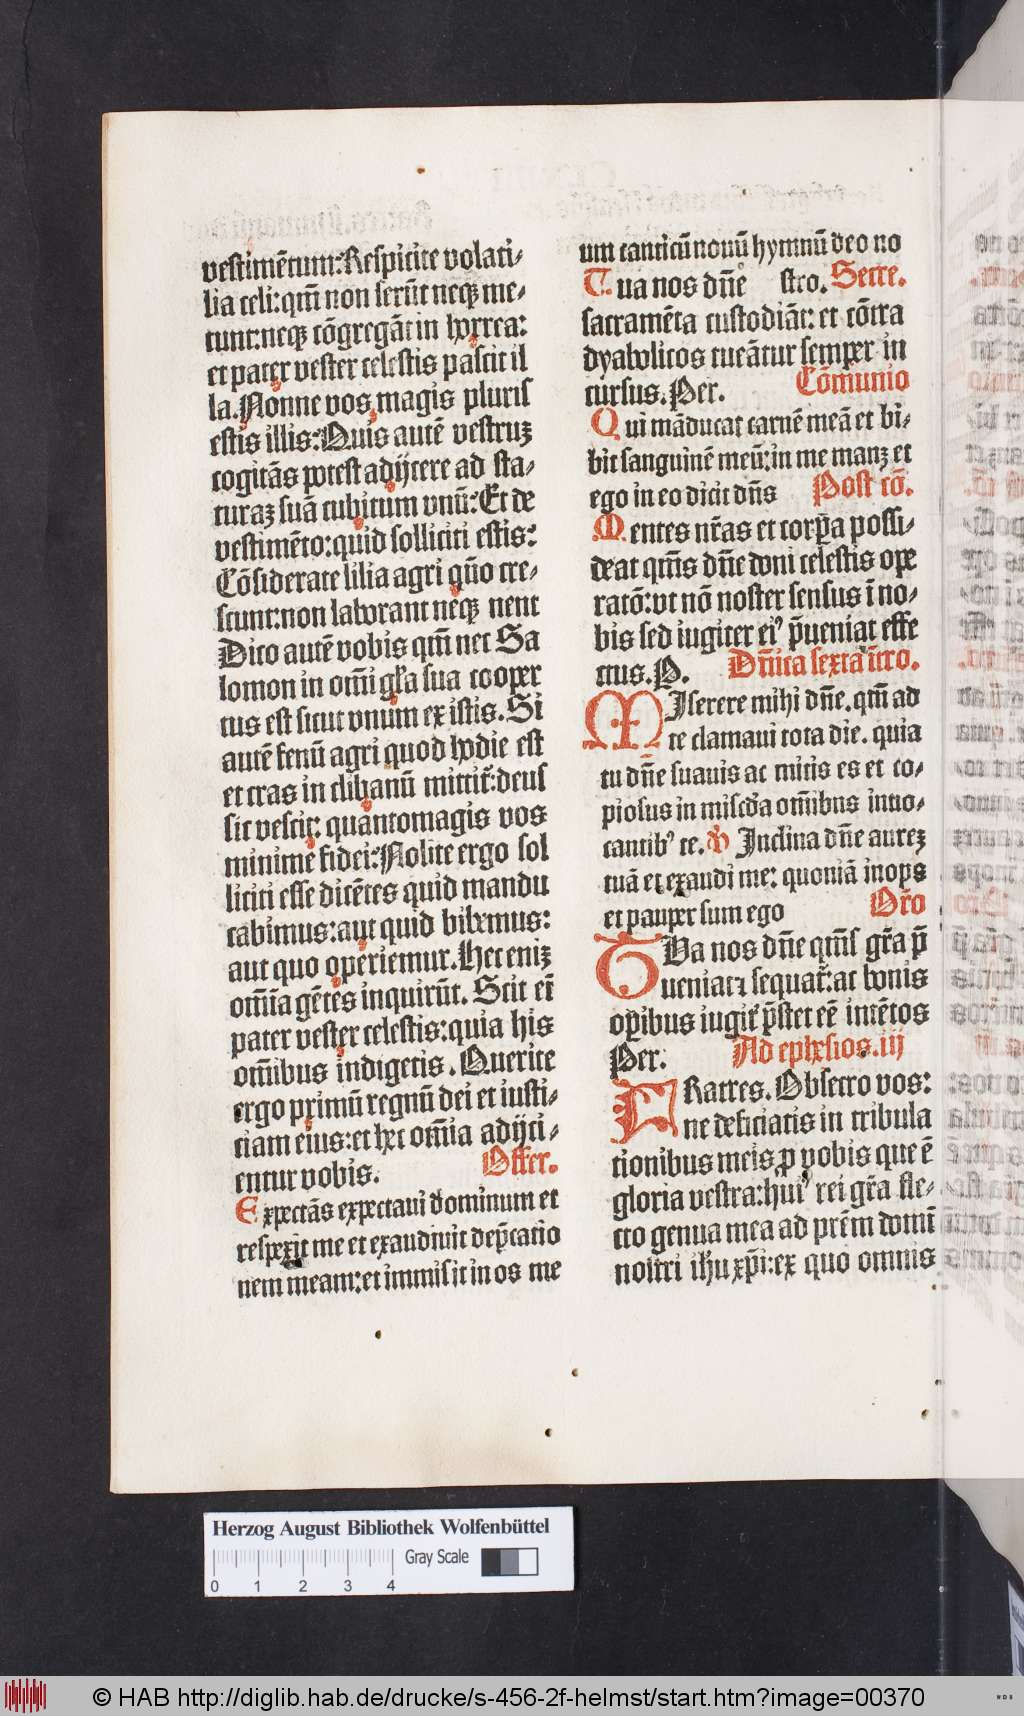 vestimētum: Respicite volati-
lia celi: qm̄ non serūt neqʒ me-
tunt: neqʒ cōgregāt in horrea:
et pater vester celestis pascit il
la. Nonne vos magis pluris
estis illis: Quis autē vestruꝫ
cogitās potest adijcere ad sta-
turaꝫ suā cubitum vnū: Et de
vestimēto: quid solliciti estis:
Cōsiderate lilia agri quō cre-
scunt: non laborant neqʒ nent
Dico autē vobis qm̄ nec Sa
lomon in om̄i gl̄ia sua cooper
tus est sicut vnum ex istis. Si
autē fenū agri quod hodie est
et cras in clibanū mittit̄: deus
sic vestit: quantomagis vos
minime fidei: Nolite ergo sol
liciti esse dicētes quid mandu
cabimus: aut quid bibemus:
aut quo operiemur. Hec eniꝫ
om̄ia gētes inquirūt. Scit eī
pater vester celestis: quia his
om̄ibus indigetis. Querite
ergo primū regnū dei et iusti-
ciam eius: et hec om̄ia adijci-
entur vobis. Offer.
Expectās expectaui dominum et
respexit me et exaudiuit dep̄catio
nem meam: et immisit in os me
um canticū nouū hymnū deo no
stro. Secre.
Tua nos dn̄e
sacramēta custodiāt: et cōtra
dyabolicos tueātur semper in
cursus. Per. Cōmunio
Qui māducat carnē meā et bi-
bit sanguinē meū: in me manꝫ et
ego in eo dicit dn̄s Post cō.
Mentes nr̄as et corpꝛa possi-
deat qm̄s dn̄e doni celestis ope
ratō: vt nō noster sensus ī no-
bis sed iugiter eiꝰ p̄ueniat effe
ctus. P. Dn̄ica sexta ītro.
MIserere mihi dn̄e. qm̄ ad
te clamaui tota die. quia
tu dn̄e suauis ac mitis es et co-
piosus in mis̄cdia om̄ibus inuo-
cantibꝰ te. ℣ Inclina dn̄e aureꝫ
tuā et exaudi me: quoniā inops
et pauper sum ego Or̄o
TUa nos dn̄e qm̄s gr̄a p̄
ueniat ⁊ sequat̄: ac bonis
opibus iugit̄ p̄stet eē intētos
Per. Ad ephesios. iij
FRatres. Obsecro vos:
ne deficiatis in tribula
tionibus meis ꝓ vobis que ē
gloria vestra: huiꝰ rei gr̄a fle-
cto genua mea ad prēm domī
nostri ih̄u xp̄i: ex quo omnis
Herzog August Bibliothek Wolfenbüttel
Gray Scale
0 1 2 3 4
© HAB http://diglib.hab.de/drucke/s-456-2f-helmst/start.htm?image=00370